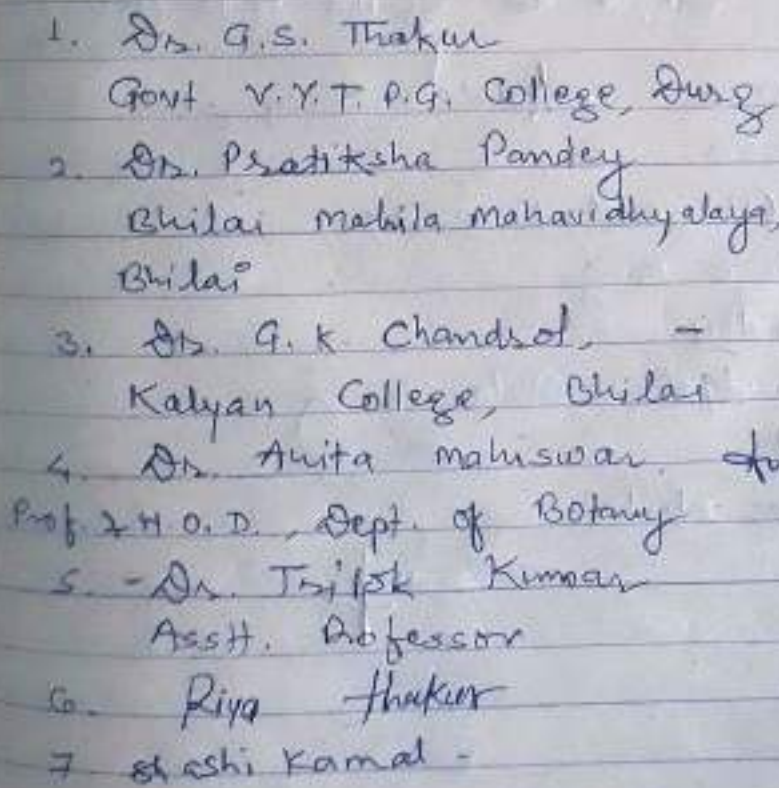 1. Dr. G.S. Thakur
Govt. V.Y.T. P.G. College, Durg
2. Dr. Pratiksha Pandey
Bhilai Mahila Mahavidhyalaya,
Bhilai
3. Dr. G. K. Chandrol, -
Kalyan College, Bhilai
4. Dr. Anita Mahiswar
Prof. & H.O.D., Dept. of Botany
5. - Dr. Trilok Kumar
Asstt. Professor
6. Riya Thakur
7 Shashi Kamal -